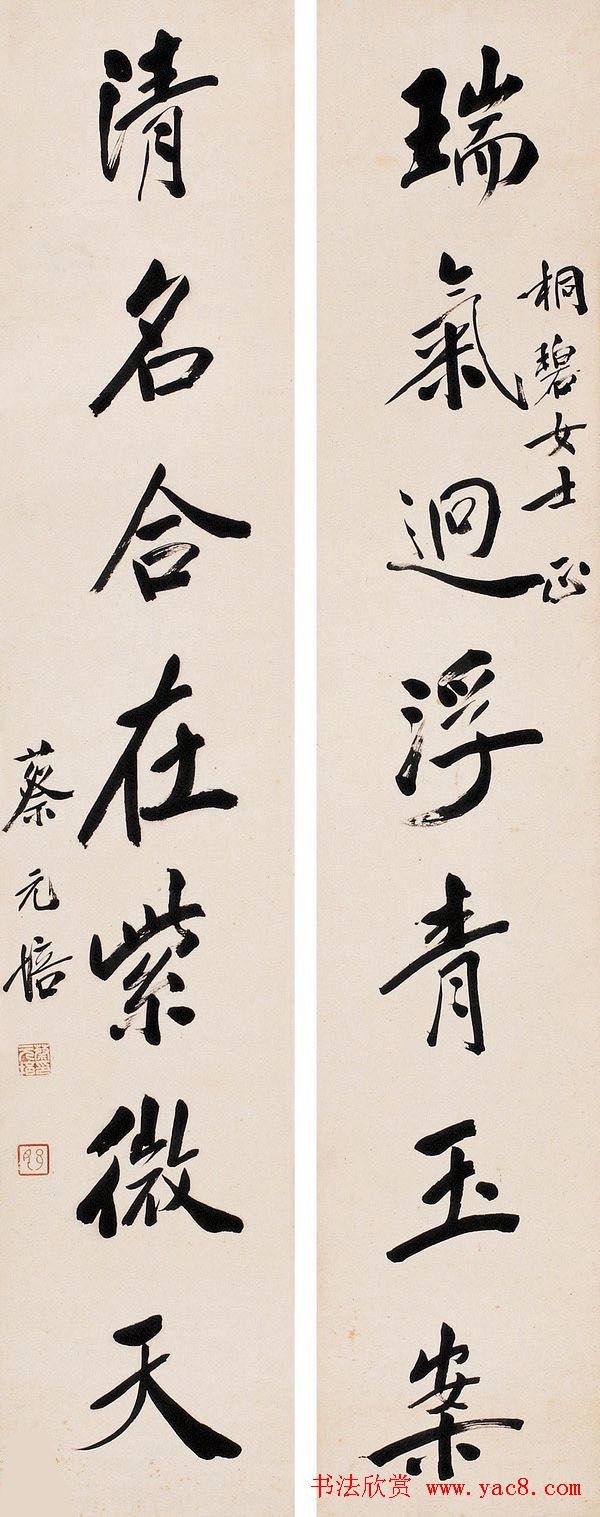 桐碧女士正
瑞氣迥浮青玉案
清名合在紫微天
蔡元培
书法欣赏 www.yac8.com